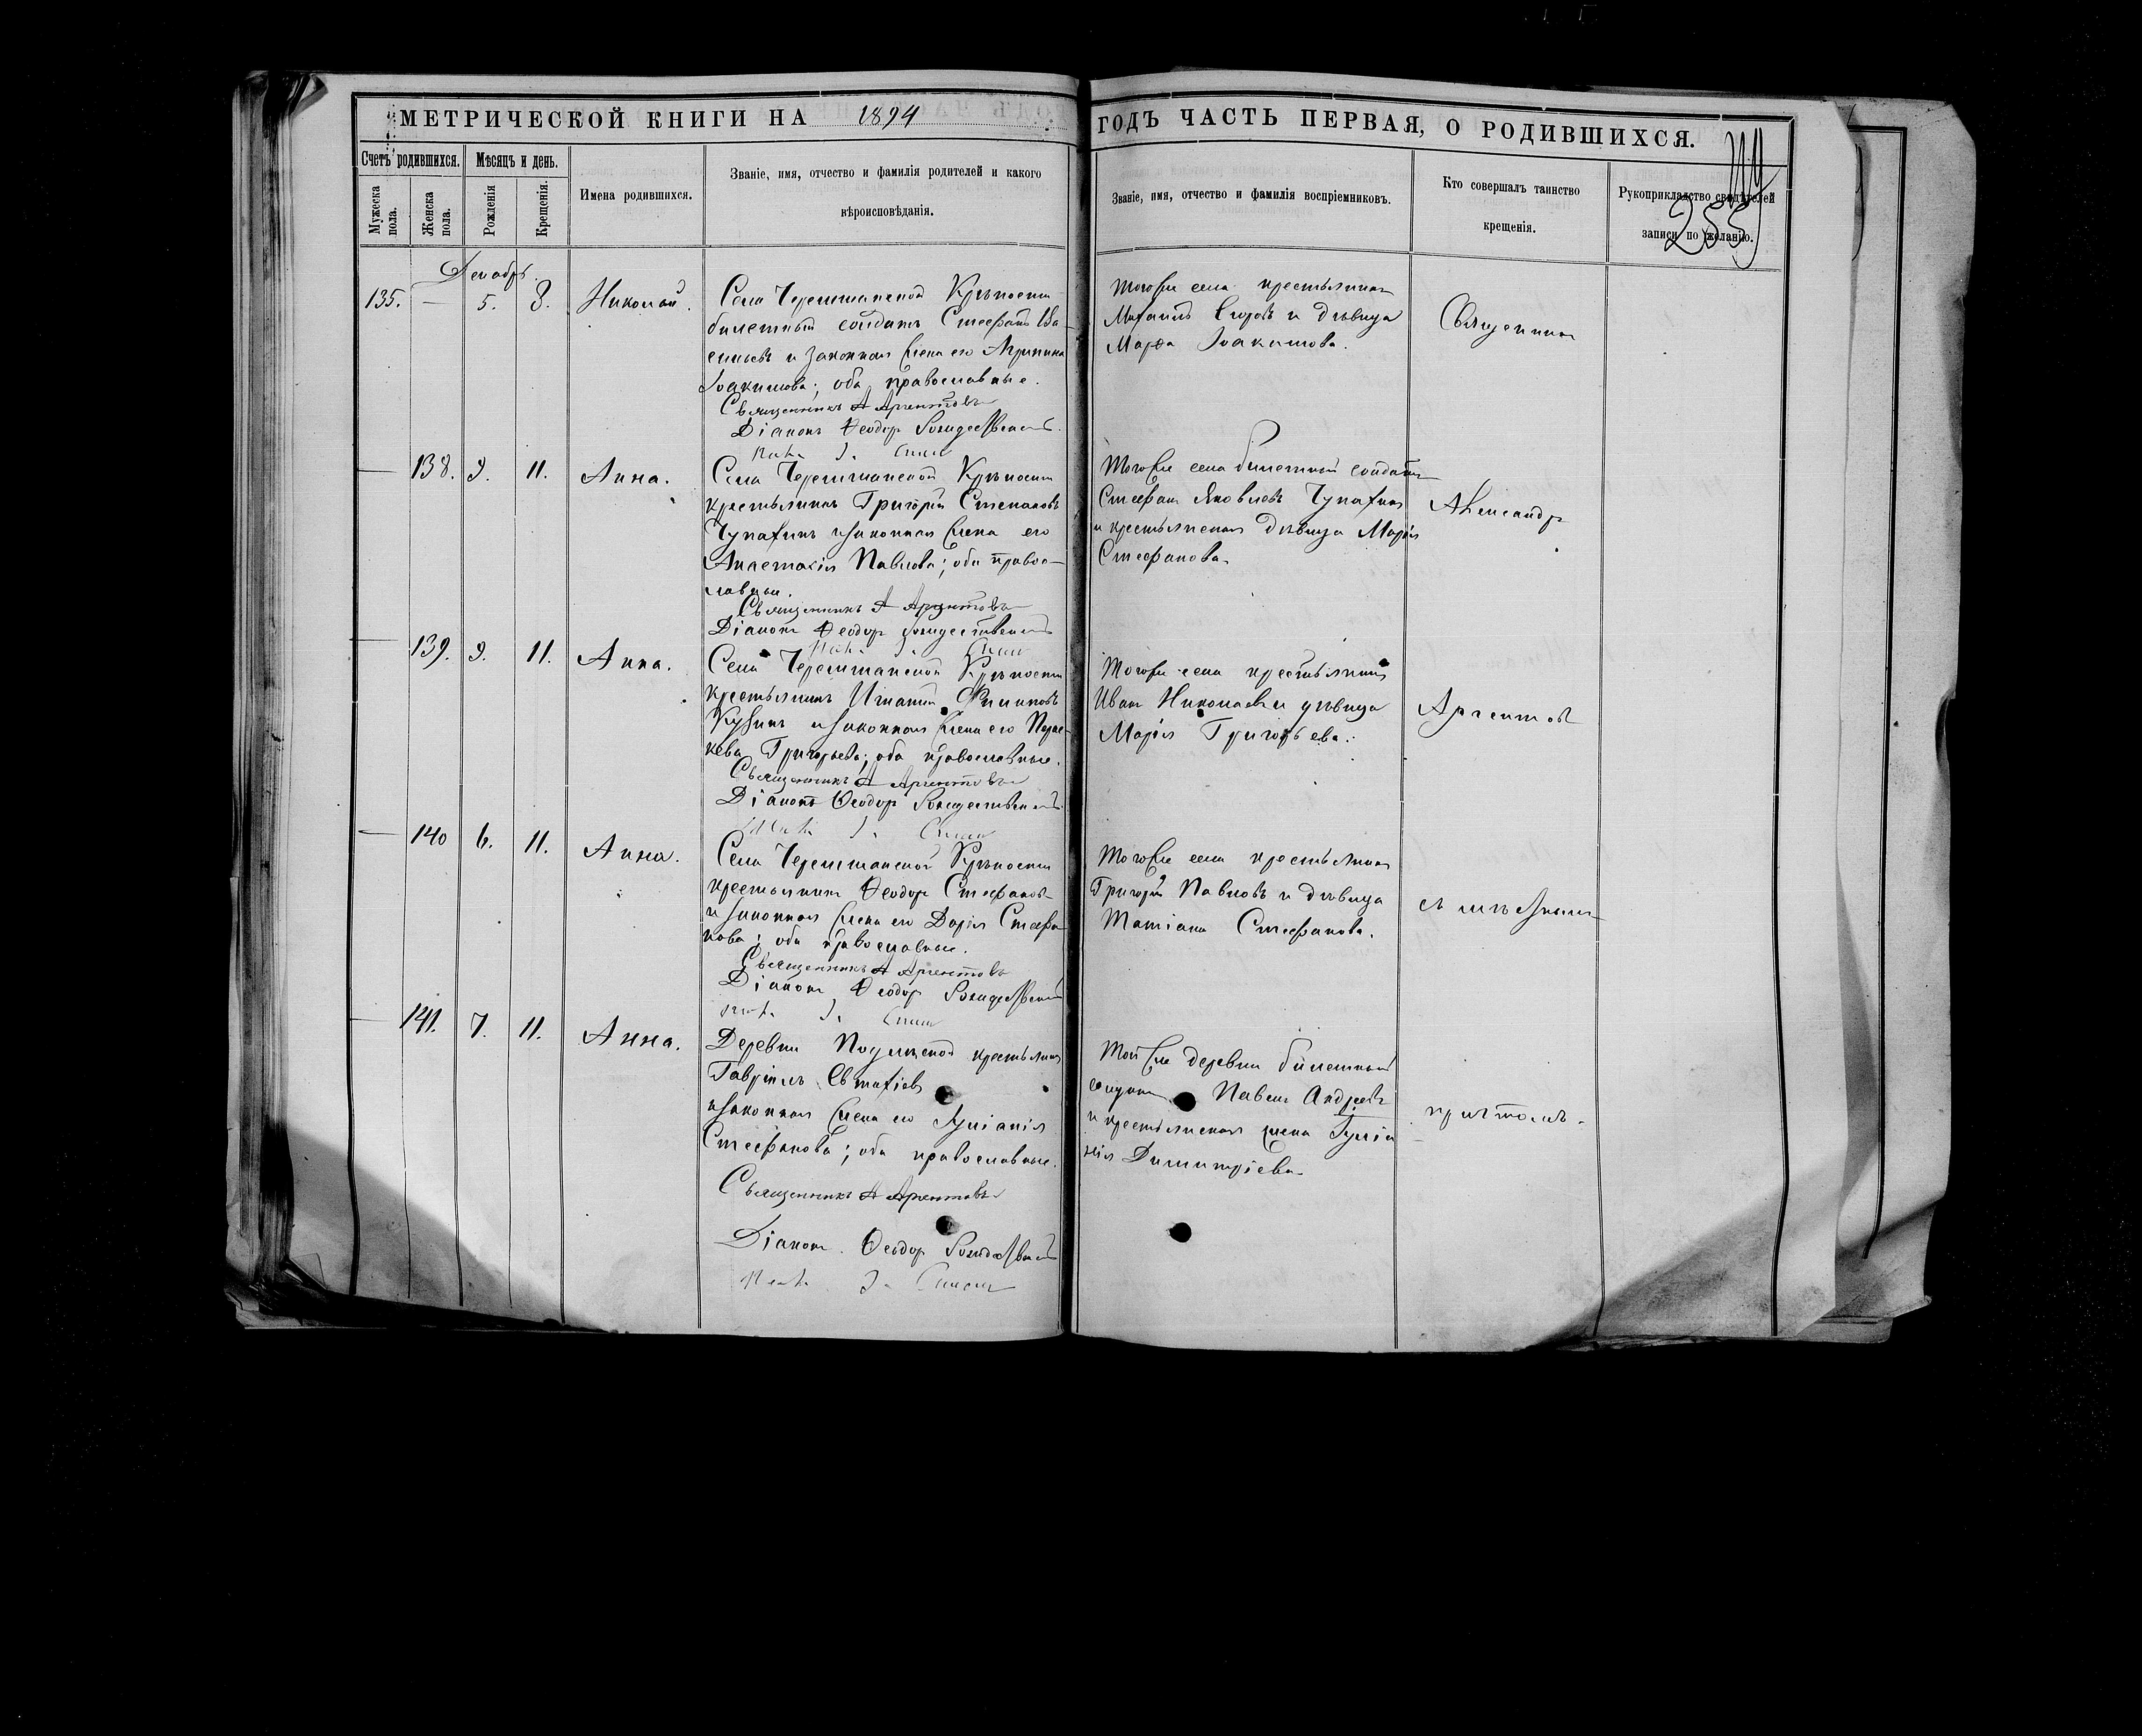 МЕТРИЧЕСКОЙ КНИГИ НА 1894 ГОДЪ ЧАСТЬ ПЕРВАЯ, О РОДИВШИХСЯ.
Счетъ родившихся.
Мѣсяцъ и день.
Мужеска пола.
Женска пола.
Рожденія
Крещенія.
Имена родившихся.
Званіе, имя, отчество и фамилія родителей и какого
вѣроисповѣданія.
Званіе, имя, отчество и фамилія воспріемниковъ.
Кто совершалъ таинство
крещенія.
Рукоприкладство свидѣтелей
записи по желанію.
255
Декабрь.
135. — 5. 8. Николай.
Села Черемшанской Крѣпости
билетный солдатъ Стефанъ Ва-
сильевъ и законная жена его Агрипина
Іоакимова; оба православные.
Священникъ А Аргентовъ
Діаконъ Ѳеодор Рождественскій
Тогоже села крестьянинъ
Михаилъ Егоровъ и дѣвица
Марѳа Іоакимова.
Священник
— 138. 9. 11. Анна.
Села Черемшанской Крѣпости
крестьянинъ Григорій Степановъ
Чупахинъ и законная жена его
Анастасія Павлова; оба правос-
лавные.
Священникъ А Аргентовъ
Діаконъ Ѳеодор Рождественскій
Тогоже села билетный солдатъ
Стефанъ Яковлевъ Чупахинъ
и крестьянская дѣвица Марія
Стефанова.
Александр
— 139. 9. 11. Анна.
Села Черемшанской Крѣпости
крестьянинъ Игнатій
и законная жена его Парас-
кева Григорьева; оба православные.
Священникъ А Аргентовъ
Діаконъ Ѳеодор Рождественскій
Тогоже села крестьянинъ
Иванъ Николаевъ и дѣвица
Марія Григорьева.
Аргентов
— 140 6. 11. Анна.
Села Черемшанской Крѣпости
крестьянинъ Ѳеодор Стефановъ
и законная жена его Дарія Стефа-
нова; оба православные.
Священникъ А Аргентовъ
Діаконъ Ѳеодор Рождественскій
Тогоже села крестьянинъ
Григорій Павловъ и дѣвица
Татіана Стефанова.
съ мѣстнымъ
— 141. 7. 11. Анна.
Деревни крестьянинъ
Гавріилъ Евтихіевъ
и законная жена его Іуліанія
Стефанова; оба православные.
Священникъ А Аргентовъ
Діаконъ Ѳеодор Рождественскій
Той же деревни билетный
солдатъ Павелъ Андреевъ
и крестьянская жена Іуліа
нія Димитріева
причтомъ.